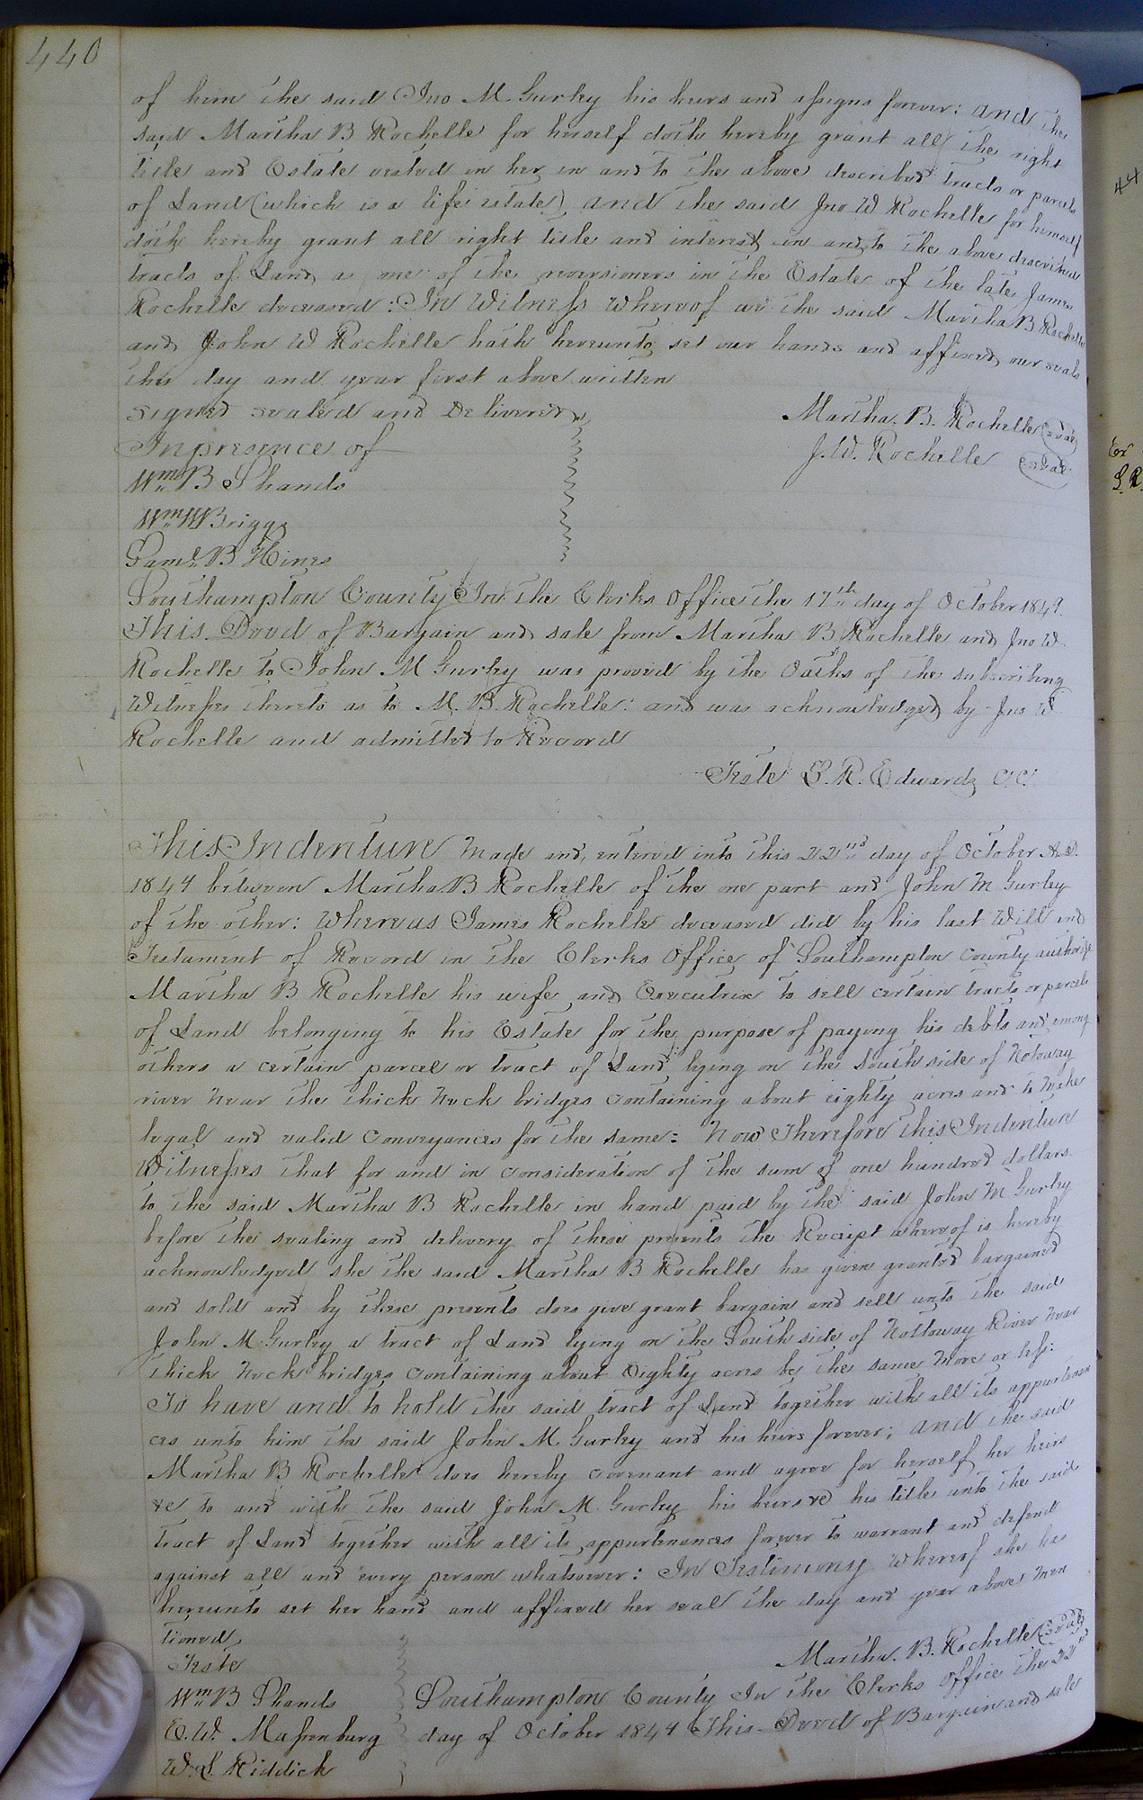 440
of him the said Jno M Gurley his heirs and assigns forever: and the
said Martha B Rochelle for herself doth hereby grant all the right
title and Estate vested in her in and to the above described tracts or parcels
of Land (which is a life estate) and the said Jno W Rochelle for himself
doth hereby grant all right title and interest in and to the above described
tracts of Land as one of the reversioners in the Estate of the late James
Rochelle deceased: In Witness whereof we the said Martha B Rochelle
and John W Rochelle hath hereunto set our hands and affixed our seals
this day and year first above written
Signed sealed and Delivered
In presence of
Martha. B. Rochelle (seal)
J. W. Rochelle (seal)
Wm B Shands
Wm W Briggs
Saml B Hines
Southampton County In the Clerks Office the 17th day of October 1849.
This Deed of Bargain and sale from Martha B Rochelle and Jno W.
Rochelle to John M Gurley was proved by the Oaths of the subscribing
Witnesses thereto as to M. B. Rochelle: and was acknowledged by Jno W
Rochelle and admitted to Record
Teste L. R. Edwards C.C.
This Indenture Made and entered into this 22nd day of October A.D.
1844 between Martha B Rochelle of the one part and John M Gurley
of the other: Whereas James Rochelle deceased did by his last Will and
Testament of Record in the Clerks Office of Southampton County authorize
Martha B Rochelle his wife and Executrix to sell certain tracts or parcels
of Land belonging to his Estate for the purpose of paying his debts and among
others a certain parcel or tract of Land lying on the South side of Notoway
river Near the thick Neck bridges containing about eighty acres and to Make
legal and valid conveyances for the same: Now Therefore This Indenture
Witnesses that for and in consideration of the sum of one hundred dollars.
to the said Martha B Rochelle in hand paid by the said John M Gurley
before the sealing and delivery of these presents the Receipt whereof is hereby
acknowledged she the said Martha B Rochelle has given granted bargained
and sold and by these presents does give grant bargain and sell unto the said
John M Gurley a tract of Land lying on the South side of Nottoway River Near
thick Neck bridges containing about Eighty acres be the same More or less:
To have and to hold the said tract of Land together with all its appurtenan
ces unto him the said John M Gurley and his heirs forever; and the said
Martha B Rochelle does hereby covenant and agree for herself her heirs
&c to and with the said John M. Gurley his heirs &c his title unto the said
tract of Land together with all its appurtenances forever to warrant and defend
against all and every person whatsoever: In Testimony whereof she has
hereunto set her hand and affixed her seal the day and year above Men
tioned
Teste
Martha. B. Rochelle (Seal)
Wm B Shands
E. W. Massenburg
W. L. Riddick
Southampton County In the Clerks Office the 22nd
day of October 1844 This Deed of Bargain and sale
44